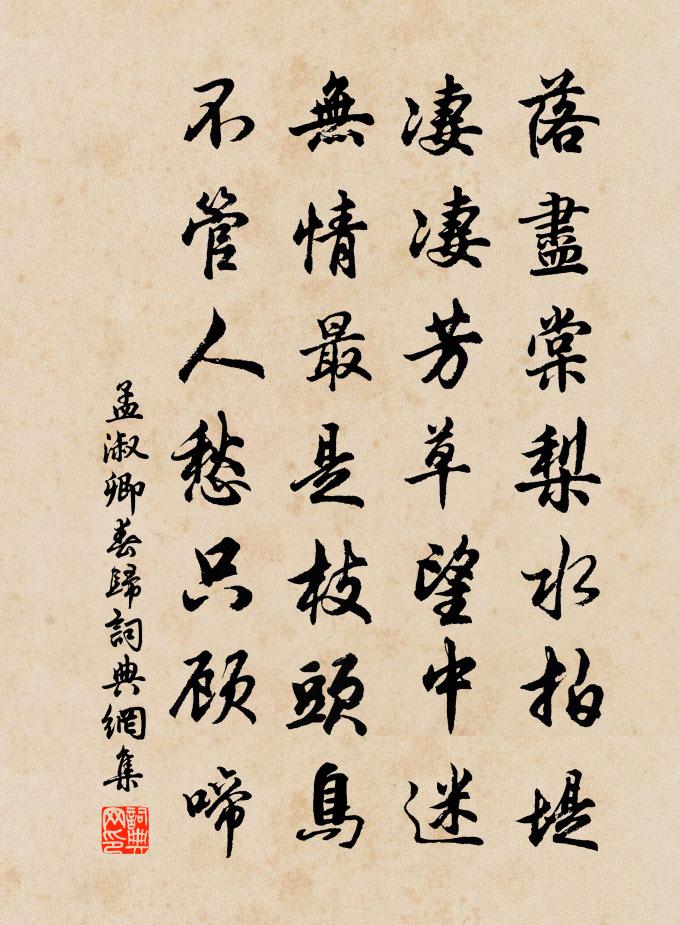 落盡棠梨水拍堤
凄凄芳草望中迷
無情最是枝頭鳥
不管人愁只顧啼
孟淑卿春歸詞典網集
詞典网印